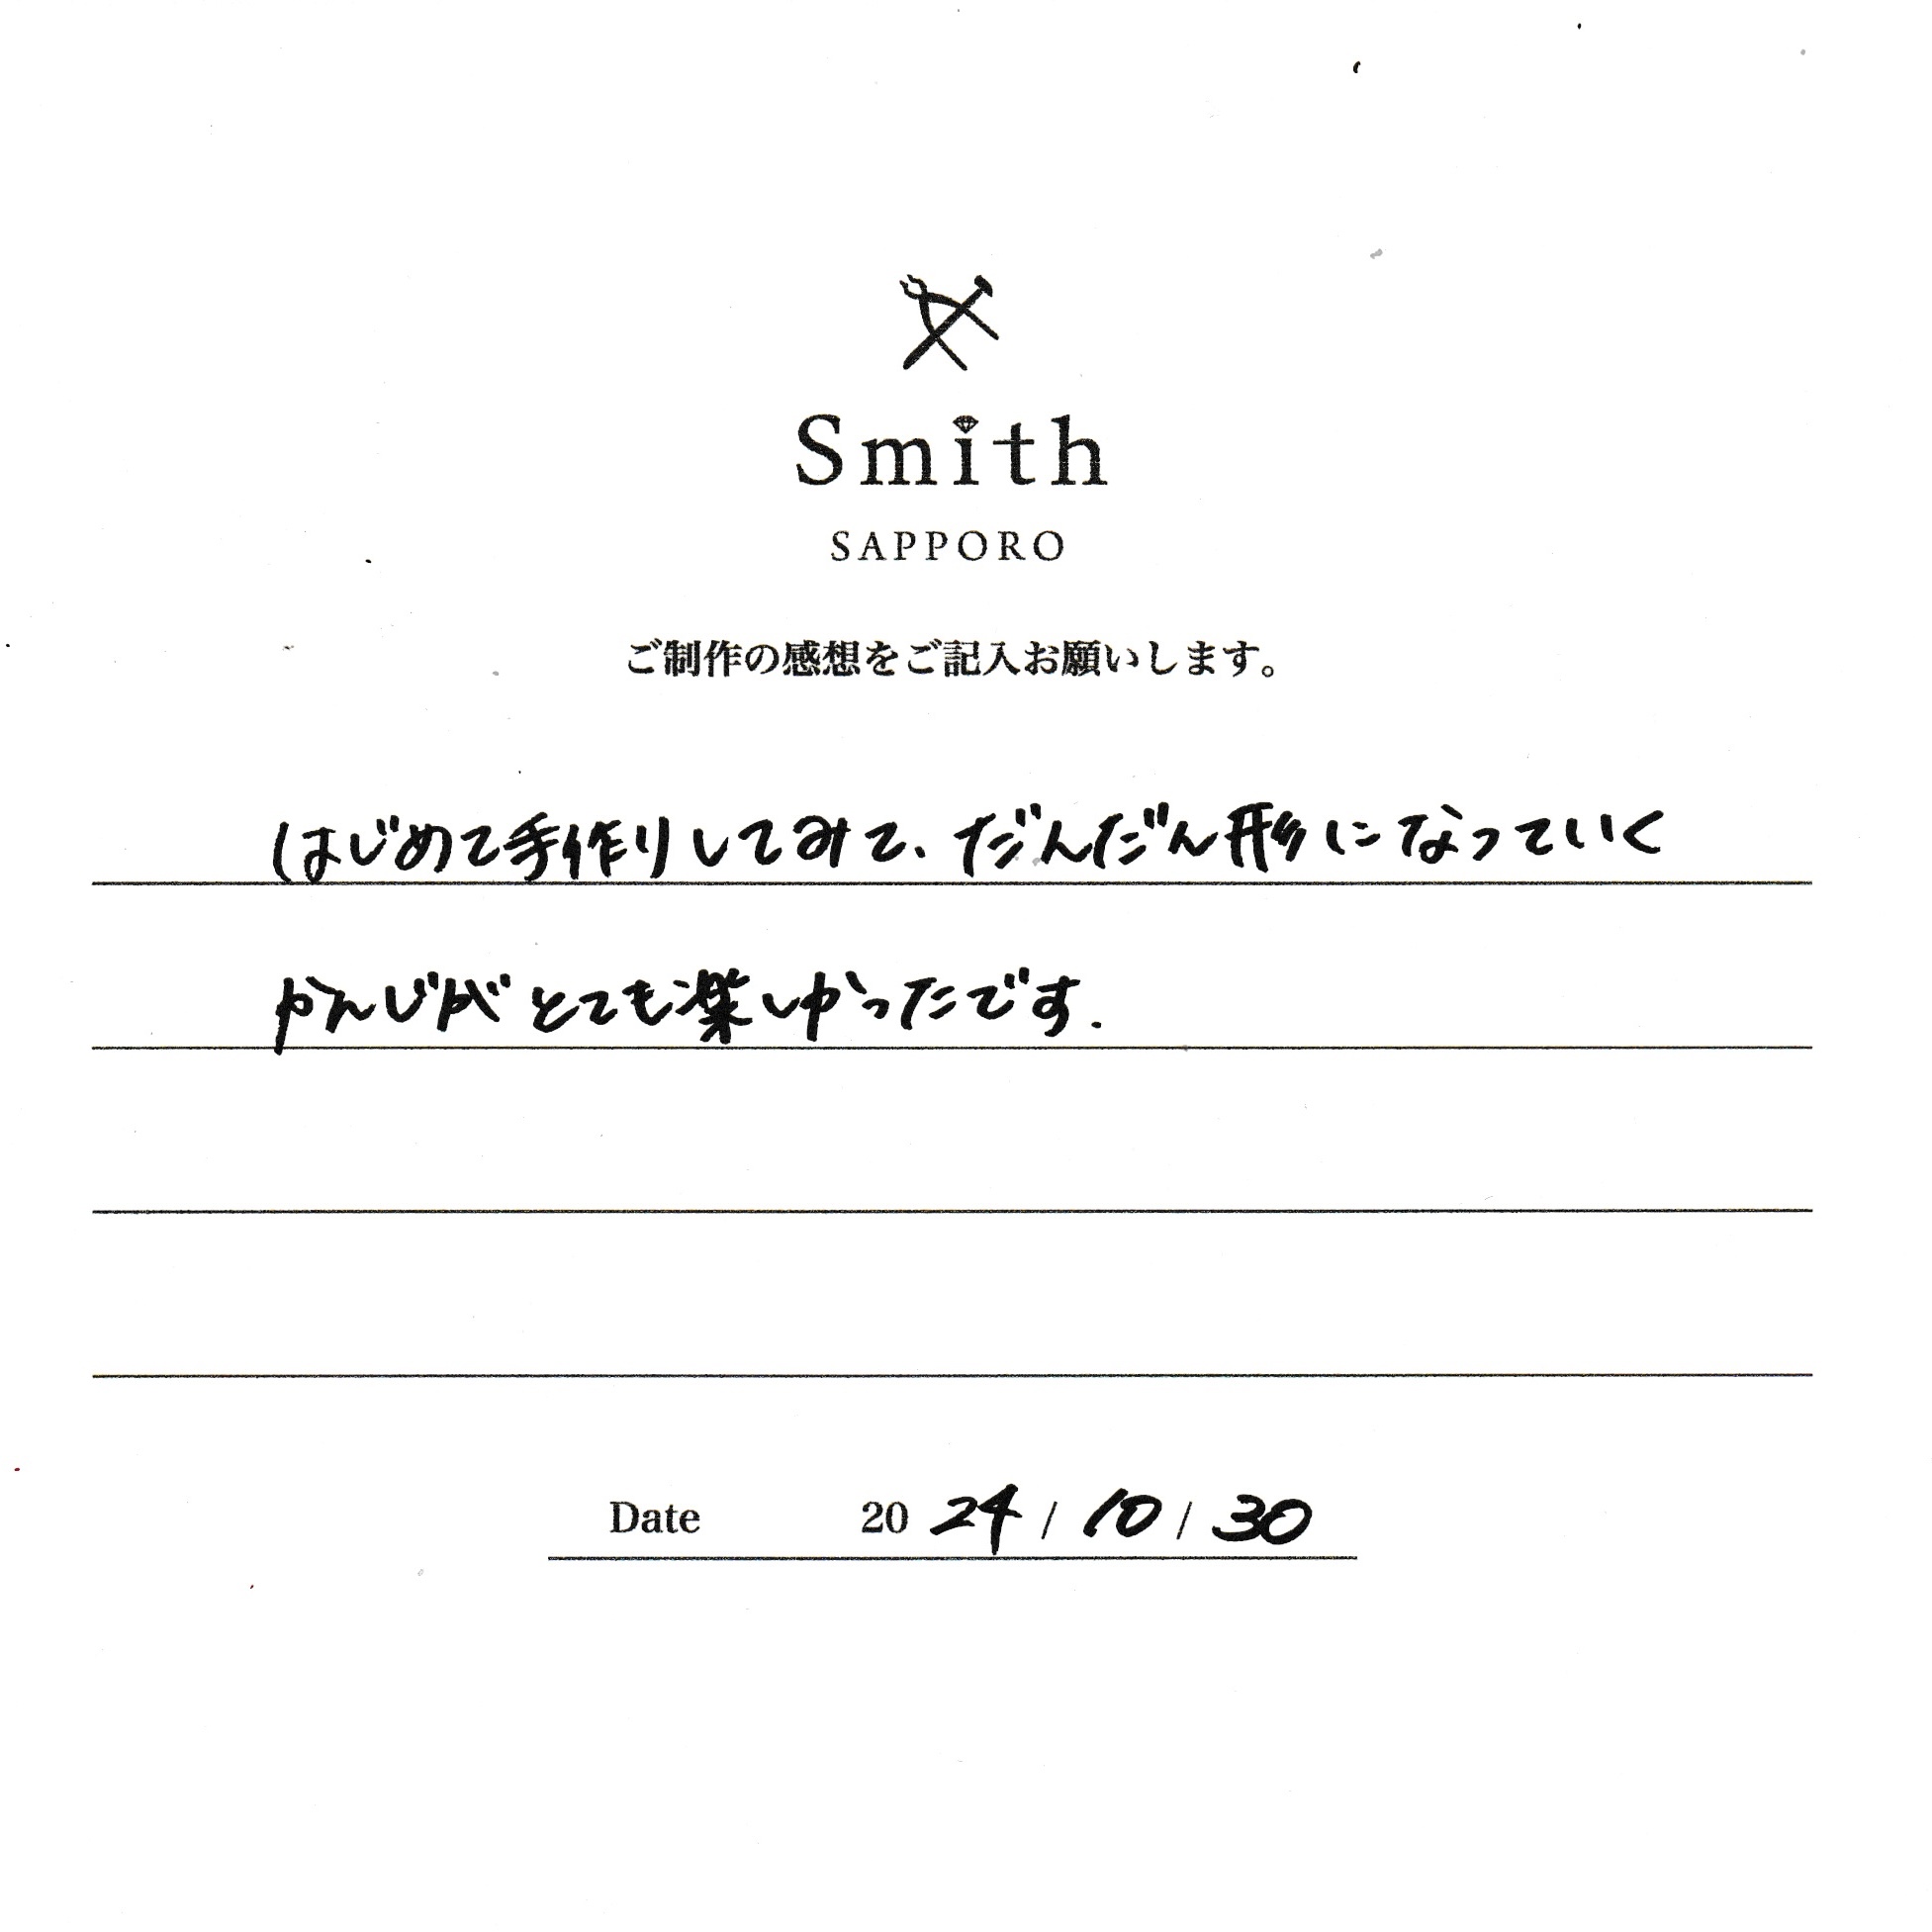 Smith
SAPPORO
ご制作の感想をご記入お願いします。
はじめて手作りしてみて、だんだん形になっていく
かんじがとても楽しかったです.
Date 2024/10/30